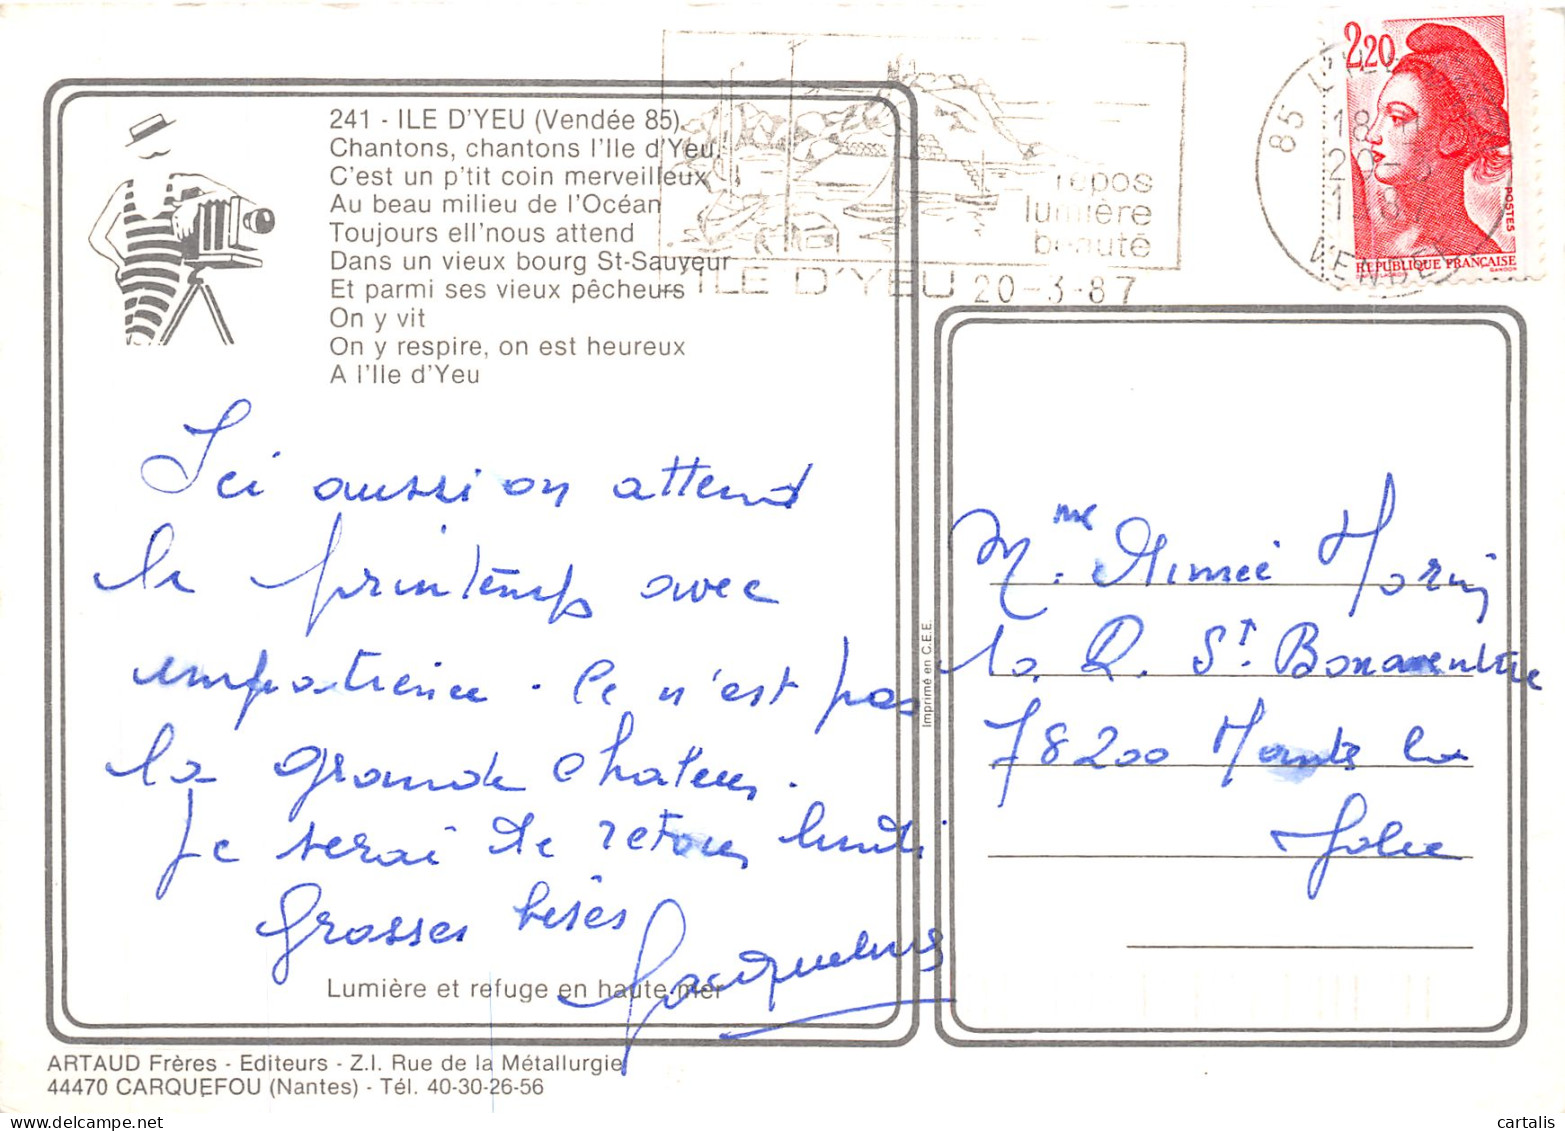 241 - ILE D'YEU (Vendée 85).
Chantons, chantons l'Ile d'Yeu.
C'est un p'tit coin merveilleux
Au beau milieu de l'Océan
Toujours ell'nous attend
Dans un vieux bourg St-Sauveur
Et parmi ses vieux pêcheurs
On y vit
On y respire, on est heureux
A l'Ile d'Yeu
repos
lumière
beauté
ILE D'YEU 20-3-87
2,20
POSTES
REPUBLIQUE FRANÇAISE
GANDON
85
18 H
20-3
VENDEE
Ici aussi on attend
le printemps avec
impatience. Ce n'est pas
la grande chaleur.
Je serai de retour lundi
Grosses bises
Jacqueline
Lumière et refuge en haute mer
ARTAUD Frères - Editeurs - Z.I. Rue de la Métallurgie
44470 CARQUEFOU (Nantes) - Tél. 40-30-26-56
Imprimé en C.E.E.
Mme. Aimée Morin
10. R. St. Bonaventure
78200 Mantes la
Jolie
cartalis